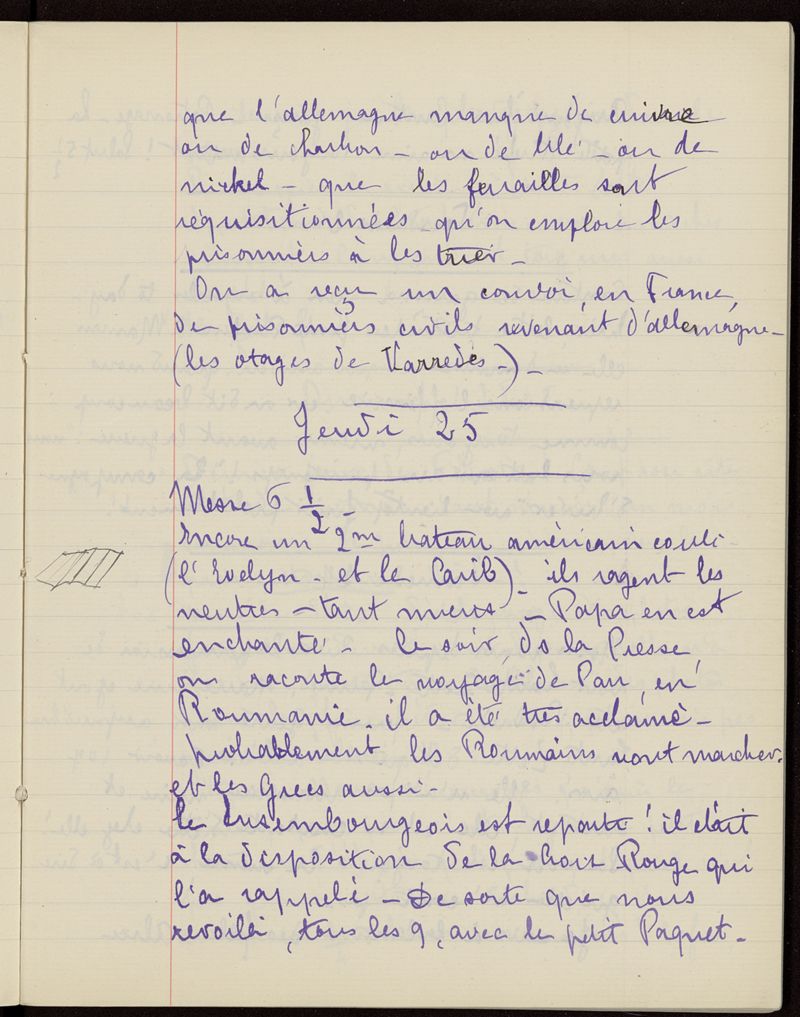 que l'allemagne manque de cuivre
ou de charbon - ou de blé - ou de
nickel - que les ferailles sont
réquisitionnées - qu'on emploie les
prisonniers à les trier -
On a reçu un convoi, en France,
de prisonniers civils revenant d'allemagne -
(les otages de Varredes -) -
Jeudi 25
Messe 6 1/2 -
Encore un 2me bateau américain coulé -
(l'Evelyn - et le Carib) - ils ragent les
neutres - tant mieux - Papa en est
enchanté - le soir, ds la Presse,
on raconte le voyage de Pau, en
Roumanie. il a été très acclamé -
probablement les Roumains vont marcher -
et les Grecs aussi -
le Luxembourgeois est reparti ! il était
à la disposition de la Croix Rouge qui
l'a rappelé - De sorte que nous
revoilà, tous les 9, avec le petit Paquet -